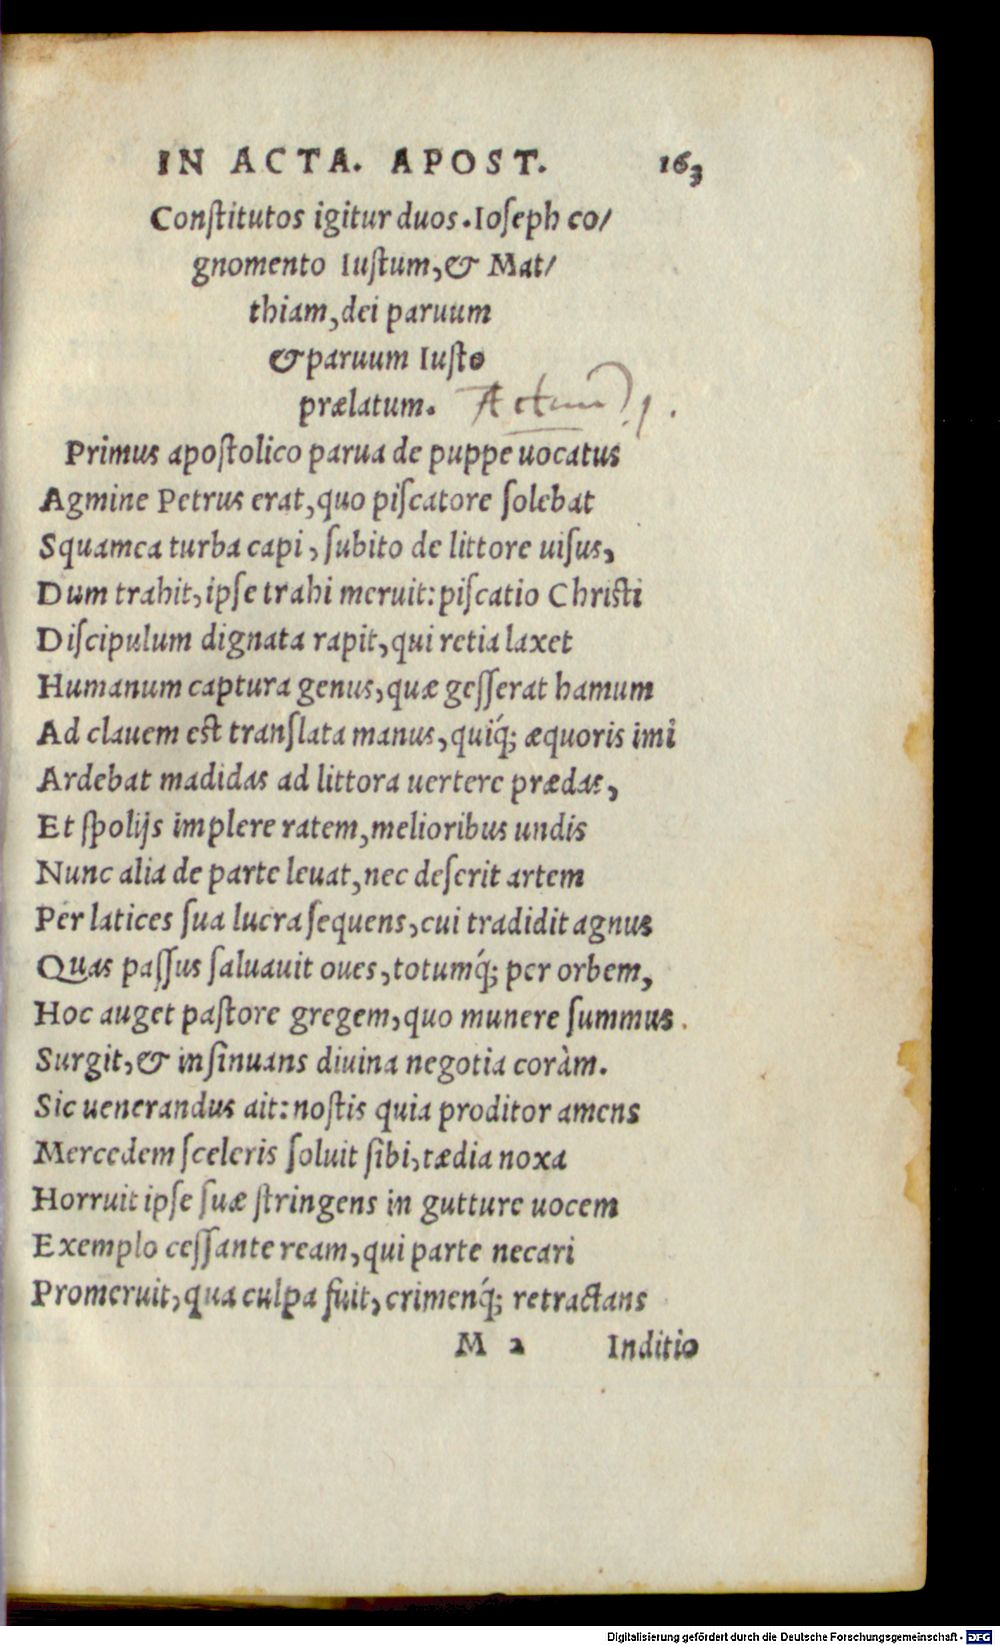 IN ACTA. APOST. 163
Constitutos igitur duos. Ioseph co/
gnomento Iustum, & Mat/
thiam, dei paruum
& paruum Iusto
prælatum. Actuu 1.
Primus apostolico parua de puppe uocatus
Agmine Petrus erat, quo piscatore solebat
Squamea turba capi, subito de littore uisus,
Dum trahit, ipse trahi meruit: piscatio Christi
Discipulum dignata rapit, qui retia laxet
Humanum captura genus, quæ gesserat hamum
Ad clauem est translata manus, quiq́; æquoris imi
Ardebat madidas ad littora uertere prædas,
Et spolijs implere ratem, melioribus undis
Nunc alia de parte leuat, nec deserit artem
Per latices sua lucra sequens, cui tradidit agnus
Quas passus saluauit oues, totumq́; per orbem,
Hoc auget pastore gregem, quo munere summus.
Surgit, & insinuans diuina negotia coràm.
Sic uenerandus ait: nostis quia proditor amens
Mercedem sceleris soluit sibi, tædia noxa
Horruit ipse suæ stringens in gutture uocem
Exemplo cessante ream, qui parte necari
Promeruit, qua culpa fuit, crimenq́; retractans
M 2 Inditio
Digitalisierung gefördert durch die Deutsche Forschungsgemeinschaft - DFG